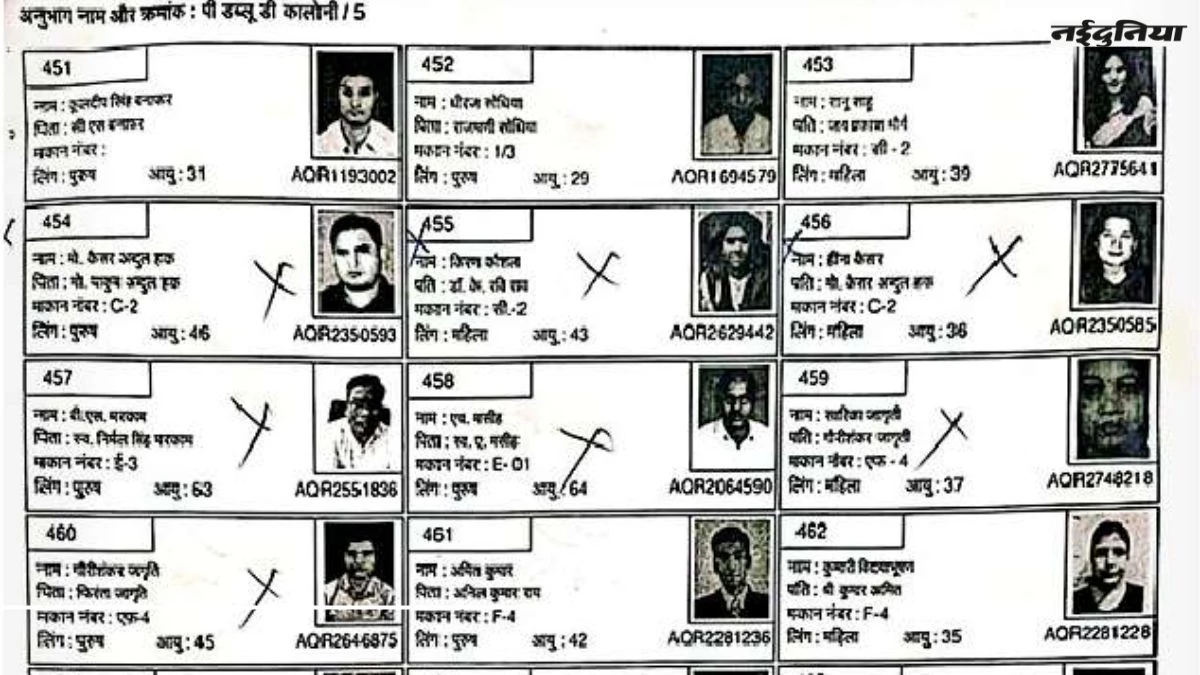 अनुभाग नाम और क्रमांक : पी डब्लू डी कालोनी / 5
नईदुनिया
451
नाम : कुलदीप सिंह बनाफर
पिता : सी एस बनाफर
मकान नंबर :
लिंग : पुरुष आयु : 31
AQR1193002
452
नाम : धीरज सोधिया
पिता : सोधिया
मकान नंबर : 1/3
लिंग : पुरुष आयु : 29
AQR1694579
453
नाम : रानू साहू
पति : जय प्रकाश मौर्य
मकान नंबर : सी - 2
लिंग : महिला आयु : 39
AQR2775641
454
नाम : मो. कैसर अब्दुल हक
पिता : मो. अब्दुल हक
मकान नंबर : C-2
लिंग : पुरुष आयु : 46
AQR2350593
455
नाम : किरण कौशल
पति : डॉ. के. रवि राव
मकान नंबर : सी.-2
लिंग : महिला आयु : 43
AQR2629442
456
नाम : हीना कैसर
पति : मो. कैसर अब्दुल हक
मकान नंबर : C-2
लिंग : महिला आयु : 36
AQR2350585
457
नाम : बी.एस. मरकाम
पिता : स्व. निर्मल सिंह मरकाम
मकान नंबर : ई-3
लिंग : पुरुष आयु : 63
AQR2551836
458
नाम : एच. मसीह
पिता : स्व. ए. मसीह
मकान नंबर : E- 01
लिंग : पुरुष आयु : 64
AQR2064590
459
नाम : सारिका जागृती
पति : गौरीशंकर जागृती
मकान नंबर : एफ - 4
लिंग : महिला आयु : 37
AQR2748218
460
नाम : गौरीशंकर जागृति
पिता : फिरंता जागृति
मकान नंबर : एफ-4
लिंग : पुरुष आयु : 45
AQR2646875
461
नाम : अमित कुमार
पिता : अनिल कुमार राय
मकान नंबर : F-4
लिंग : पुरुष आयु : 42
AQR2281236
462
नाम : कुमारी विद्याभूषण
पति : श्री कुमार अमित
मकान नंबर : F-4
लिंग : महिला आयु : 35
AQR2281228